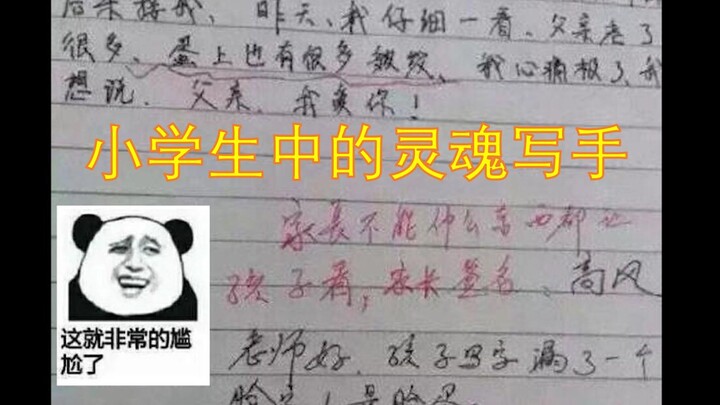 后来接我、昨天、我仔细一看、父亲老了
很多、蛋上也有很多皱纹、我心痛极了、我
想说、父亲、我爱你！
小学生中的灵魂写手
家长不能什么东西都让
孩子看，家长签名、高风
这就非常的尴
尬了
老师好、孩子写字漏了一个
脸字！是脸蛋